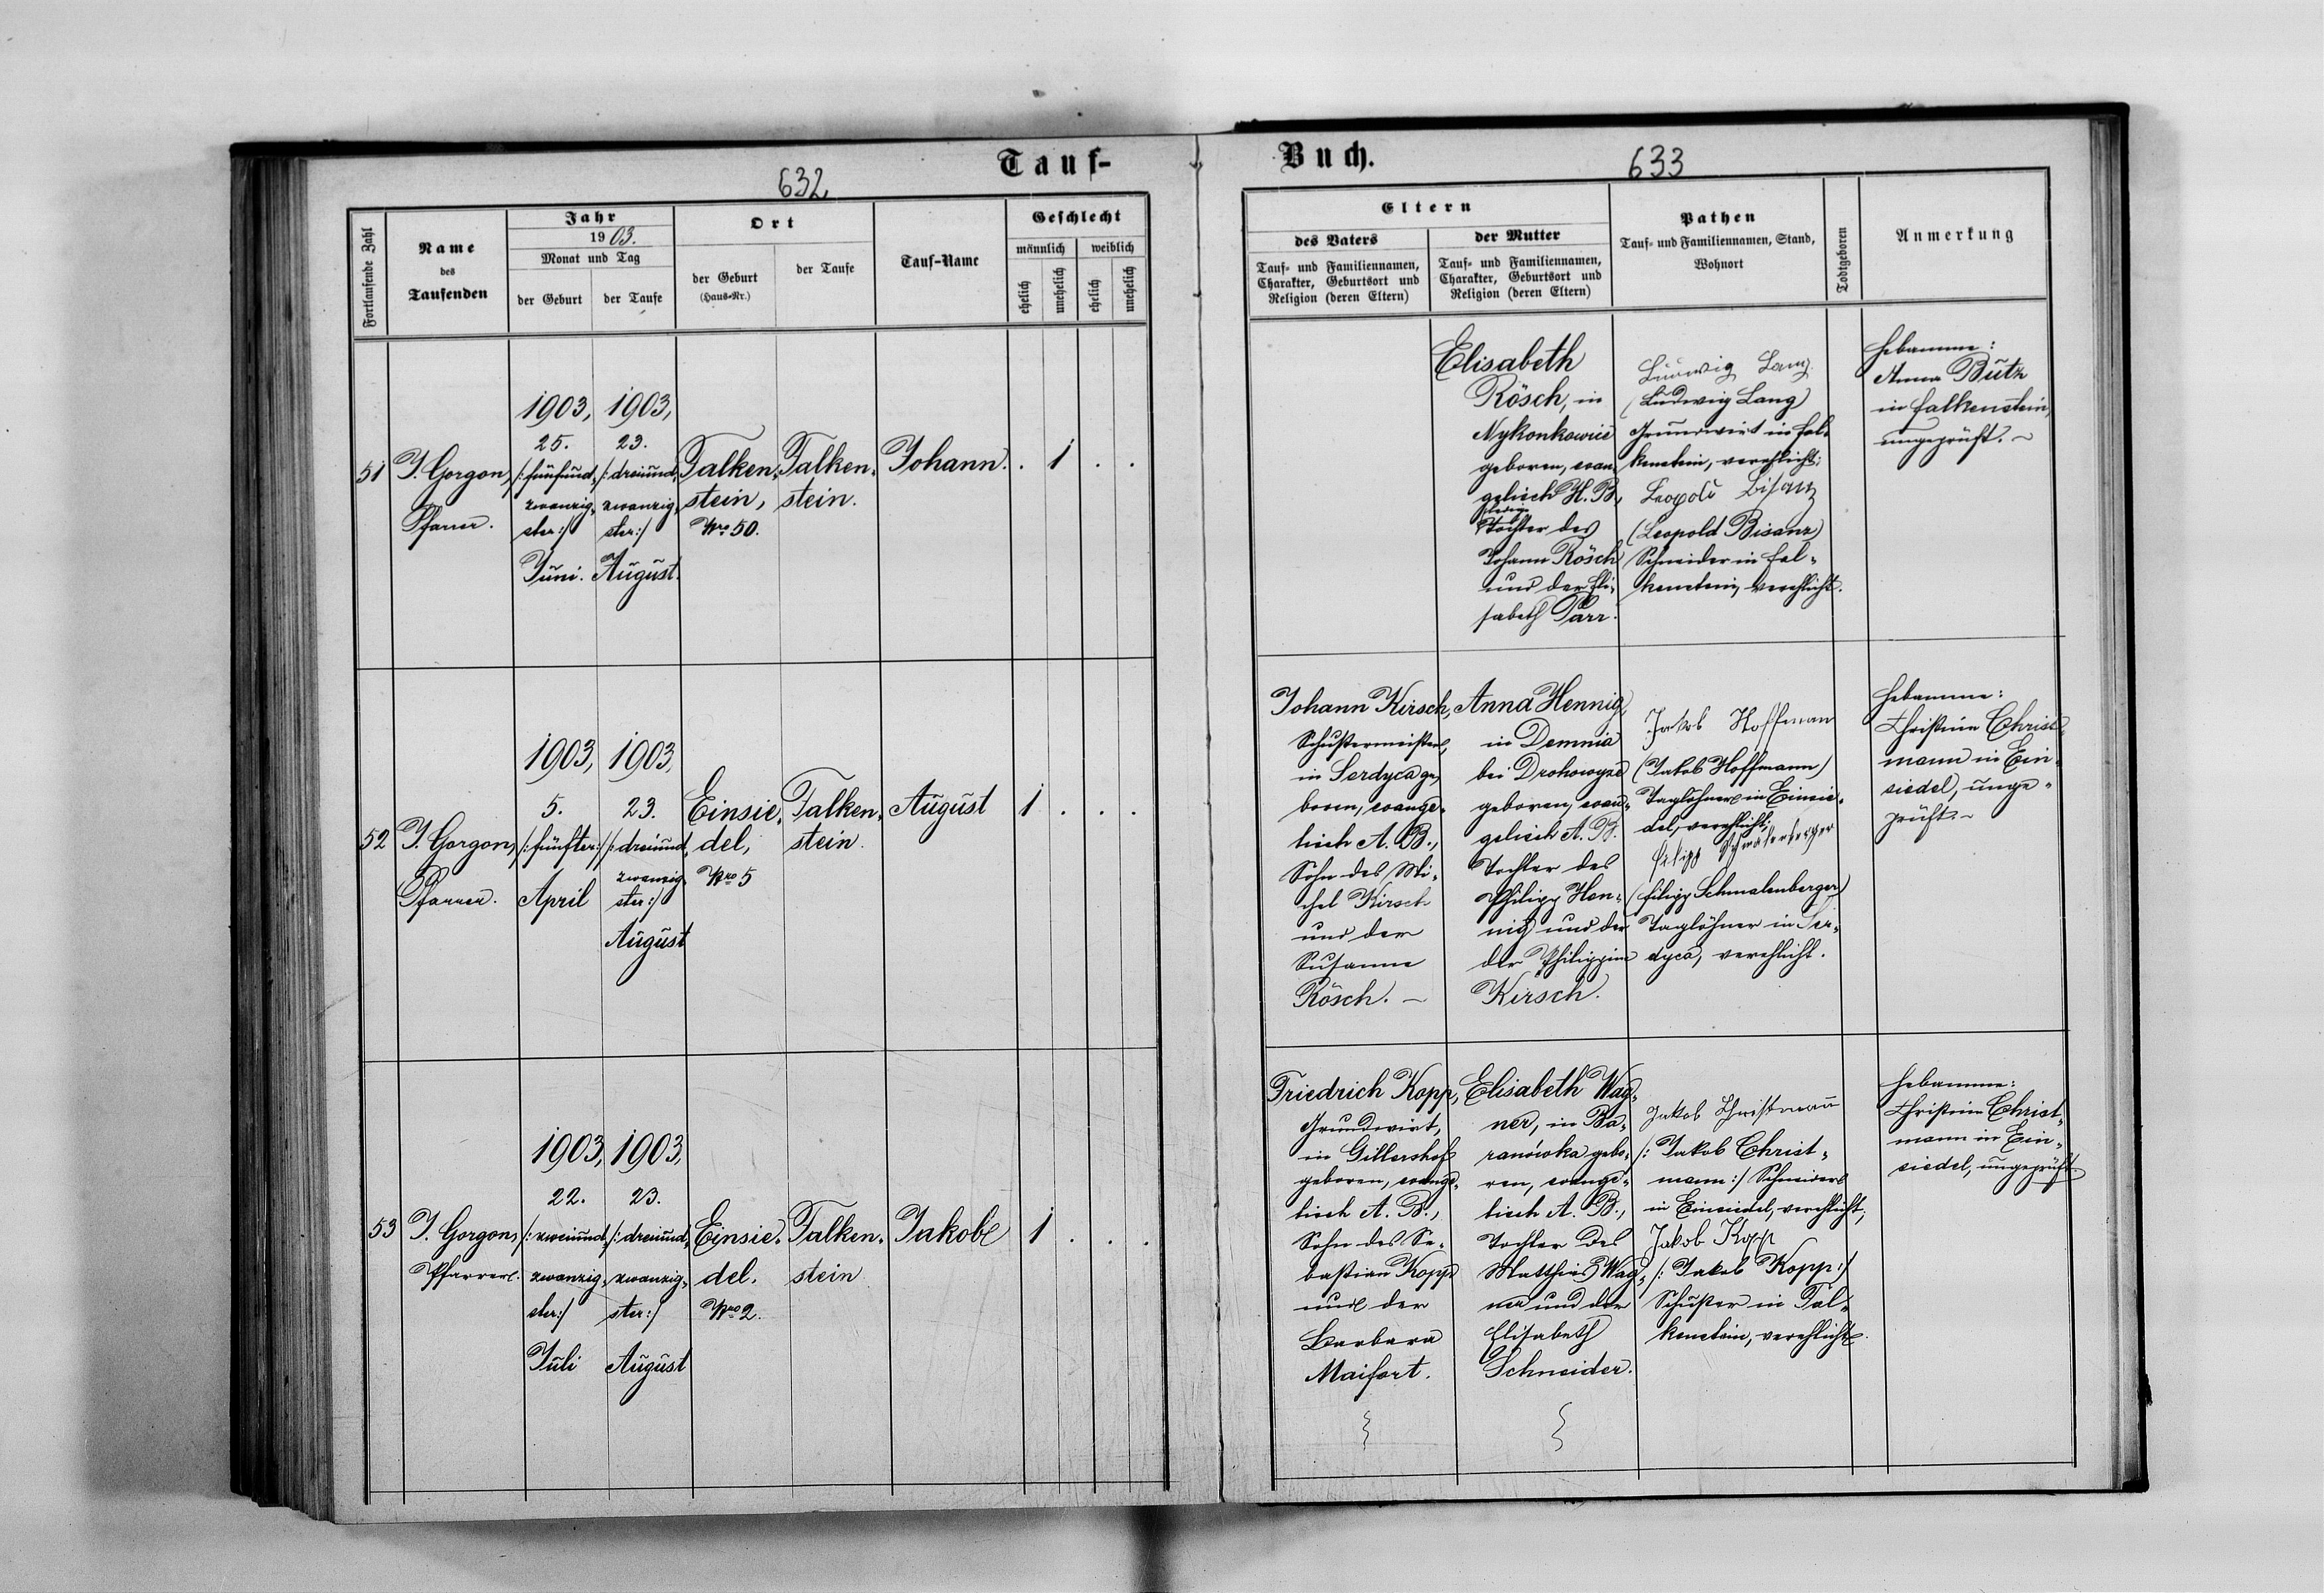 Tauf-
632
Fortlaufende Zahl
Name
des
Taufenden
Jahr
1903.
Monat und Tag
der Geburt
der Taufe
Ort
der Geburt
(Haus-Nr.)
der Taufe
Tauf-Name
Geschlecht
männlich
weiblich
ehelich
unehelich
ehelich
unehelich
51
J. Gorgon,
Pfarrer.
1903,
25.
/:fünfund„
zwanzig„
ster:/
Juni.
1903,
23.
/:dreiund„
zwanzig„
ster:/
August.
Falken„
stein,
Nro 50.
Falken„
stein.
Johann.
. 1 . .
52
J. Gorgon,
Pfarrer.
1903,
5.
/:fünfter:/
April
1903,
23.
/:dreiund„
zwanzig„
ster:/
August
Einsie„
del,
Nro 5
Falken„
stein.
August
1 . . .
53
J. Gorgon,
Pfarrer.
1903,
22.
/:zweiund„
zwanzig„
ster:/
Juli
1903,
23.
/:dreiund„
zwanzig„
ster:/
August
Einsie„
del.
Nro 2.
Falken„
stein
Jakob
1 . . .
Buch.
633
Eltern
des Vaters
Tauf- und Familiennamen,
Charakter, Geburtsort und
Religion (deren Eltern)
der Mutter
Tauf- und Familiennamen,
Charakter, Geburtsort und
Religion (deren Eltern)
Pathen
Tauf- und Familiennamen, Stand,
Wohnort
Todtgeboren
Anmerkung
Elisabeth
Rösch, in
Nykonkowice
geboren, evan„
gelisch H. B.,
ledige
Tochter des
Johann Rösch
und der Eli„
sabeth Parr.
Ludwig Lang
(Ludwig Lang)
Grundwirt in Fal„
kenstein, verehlicht;
Leopold Bisanz
(Leopold Bisanz)
Schneider in Fal„
kenstein, verehlicht.
Hebamme:
Anna Butz
in Falkenstein,
ungeprüft. ~
Johann Kirsch,
Schustermeister,
in Serdyca ge„
boren, evange„
lisch A. B.,
Sohn des Mi„
chel Kirsch
und der
Susanne
Rösch. ~
Anna Hennig,
in Demnia
bei Drohowyze
geboren, evan„
gelisch A. B.
Tochter des
Philipp Hen„
nig und der
der Philippine
Kirsch.
Jakob Hoffman
(Jakob Hoffmann)
Taglöhner in Einsie„
del, verehlicht;
Filipp Schmalenberger
(Filipp Schmalenberger)
Taglöhner in Ser„
dyca, verehlicht.
Hebamme:
Christine Christ„
mann in Ein„
siedel, unge„
prüft. ~
Friedrich Kopp,
Grundwirt,
in Gillershof
geboren, evange„
lisch A. B.,
Sohn des Se„
bastian Kopp
und der
Barbara
Maifort.
Elisabeth Wag„
ner, in Ba„
ranówka gebo„
ren, evange„
lisch A. B.,
Tochter des
Matthias Wag„
ner und der
Elisabeth
Schneider.
Jakob Christmann
/: Jakob Christ„
mann :/ Schneider
in Einsiedel, verehlicht;
Jakob Kopp
/: Jakob Kopp :/
Schuster in Fal„
kenstein, verehlicht.
Hebamme:
Christine Christ„
mann in Ein„
siedel, ungeprüft.